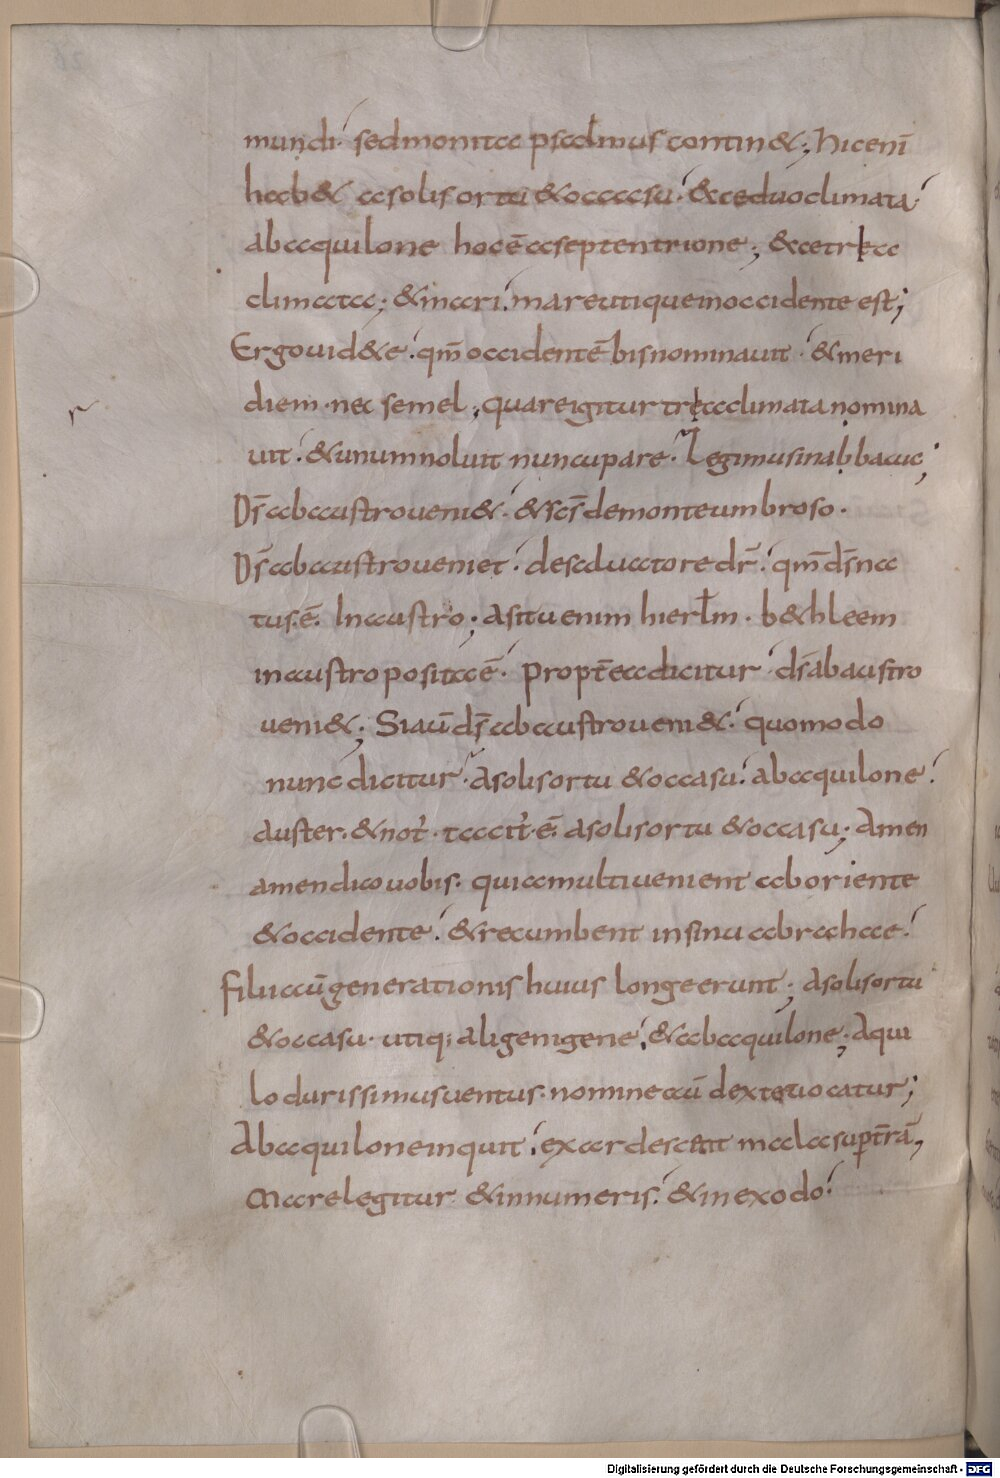 mundi· sed monita psalmus contin&; Hic enī
hab& a solis ortu & occasu· & ce duo climata·
ab aquilone hoc ē a septentrione; & ce tria
climata; & in mari· mare utique in occidente est;
Ergo uid&e· qm̄ occidentē bis nominauit· & meri
diem· nec semel; quare igitur tria climata nomina
uit· & unum noluit nuncupare· Legimus in abbacuc;
Ds̄ ab austro ueni&· & scs̄ de monte umbroso·
Ds̄ ab austro ueniet· de saluatore dr̄· qm̄ ds̄ na
tus·ē· In austro; a situ enim hierlm̄· b&hleem
in austro posita ē· propt̄ ea dicitur· ds̄ ab austro
ueni&; Si aū ds̄ ab austro ueni&· quomodo
nunc dicitur· a solis ortu & occasu· ab aquilone·
auster· & not̄· tacit̄·ē· a solis ortu & occasu; Amen
amen dico uobis· quia multi uenient ab oriente
& occidente· & recumbent in sinu abrahae·
filii aū generationis huius longe erunt; a solis ortu
& occasu· utiq; aligenigene· & ab aquilone; Aqui
lo durissimus uentus· nomine aū dexter uocatur;
Ab aquilone inquit· exardescent mala sup t̄rā,
Mare legitur & in numeris· & in exodo·
Digitalisierung gefördert durch die Deutsche Forschungsgemeinschaft - DFG